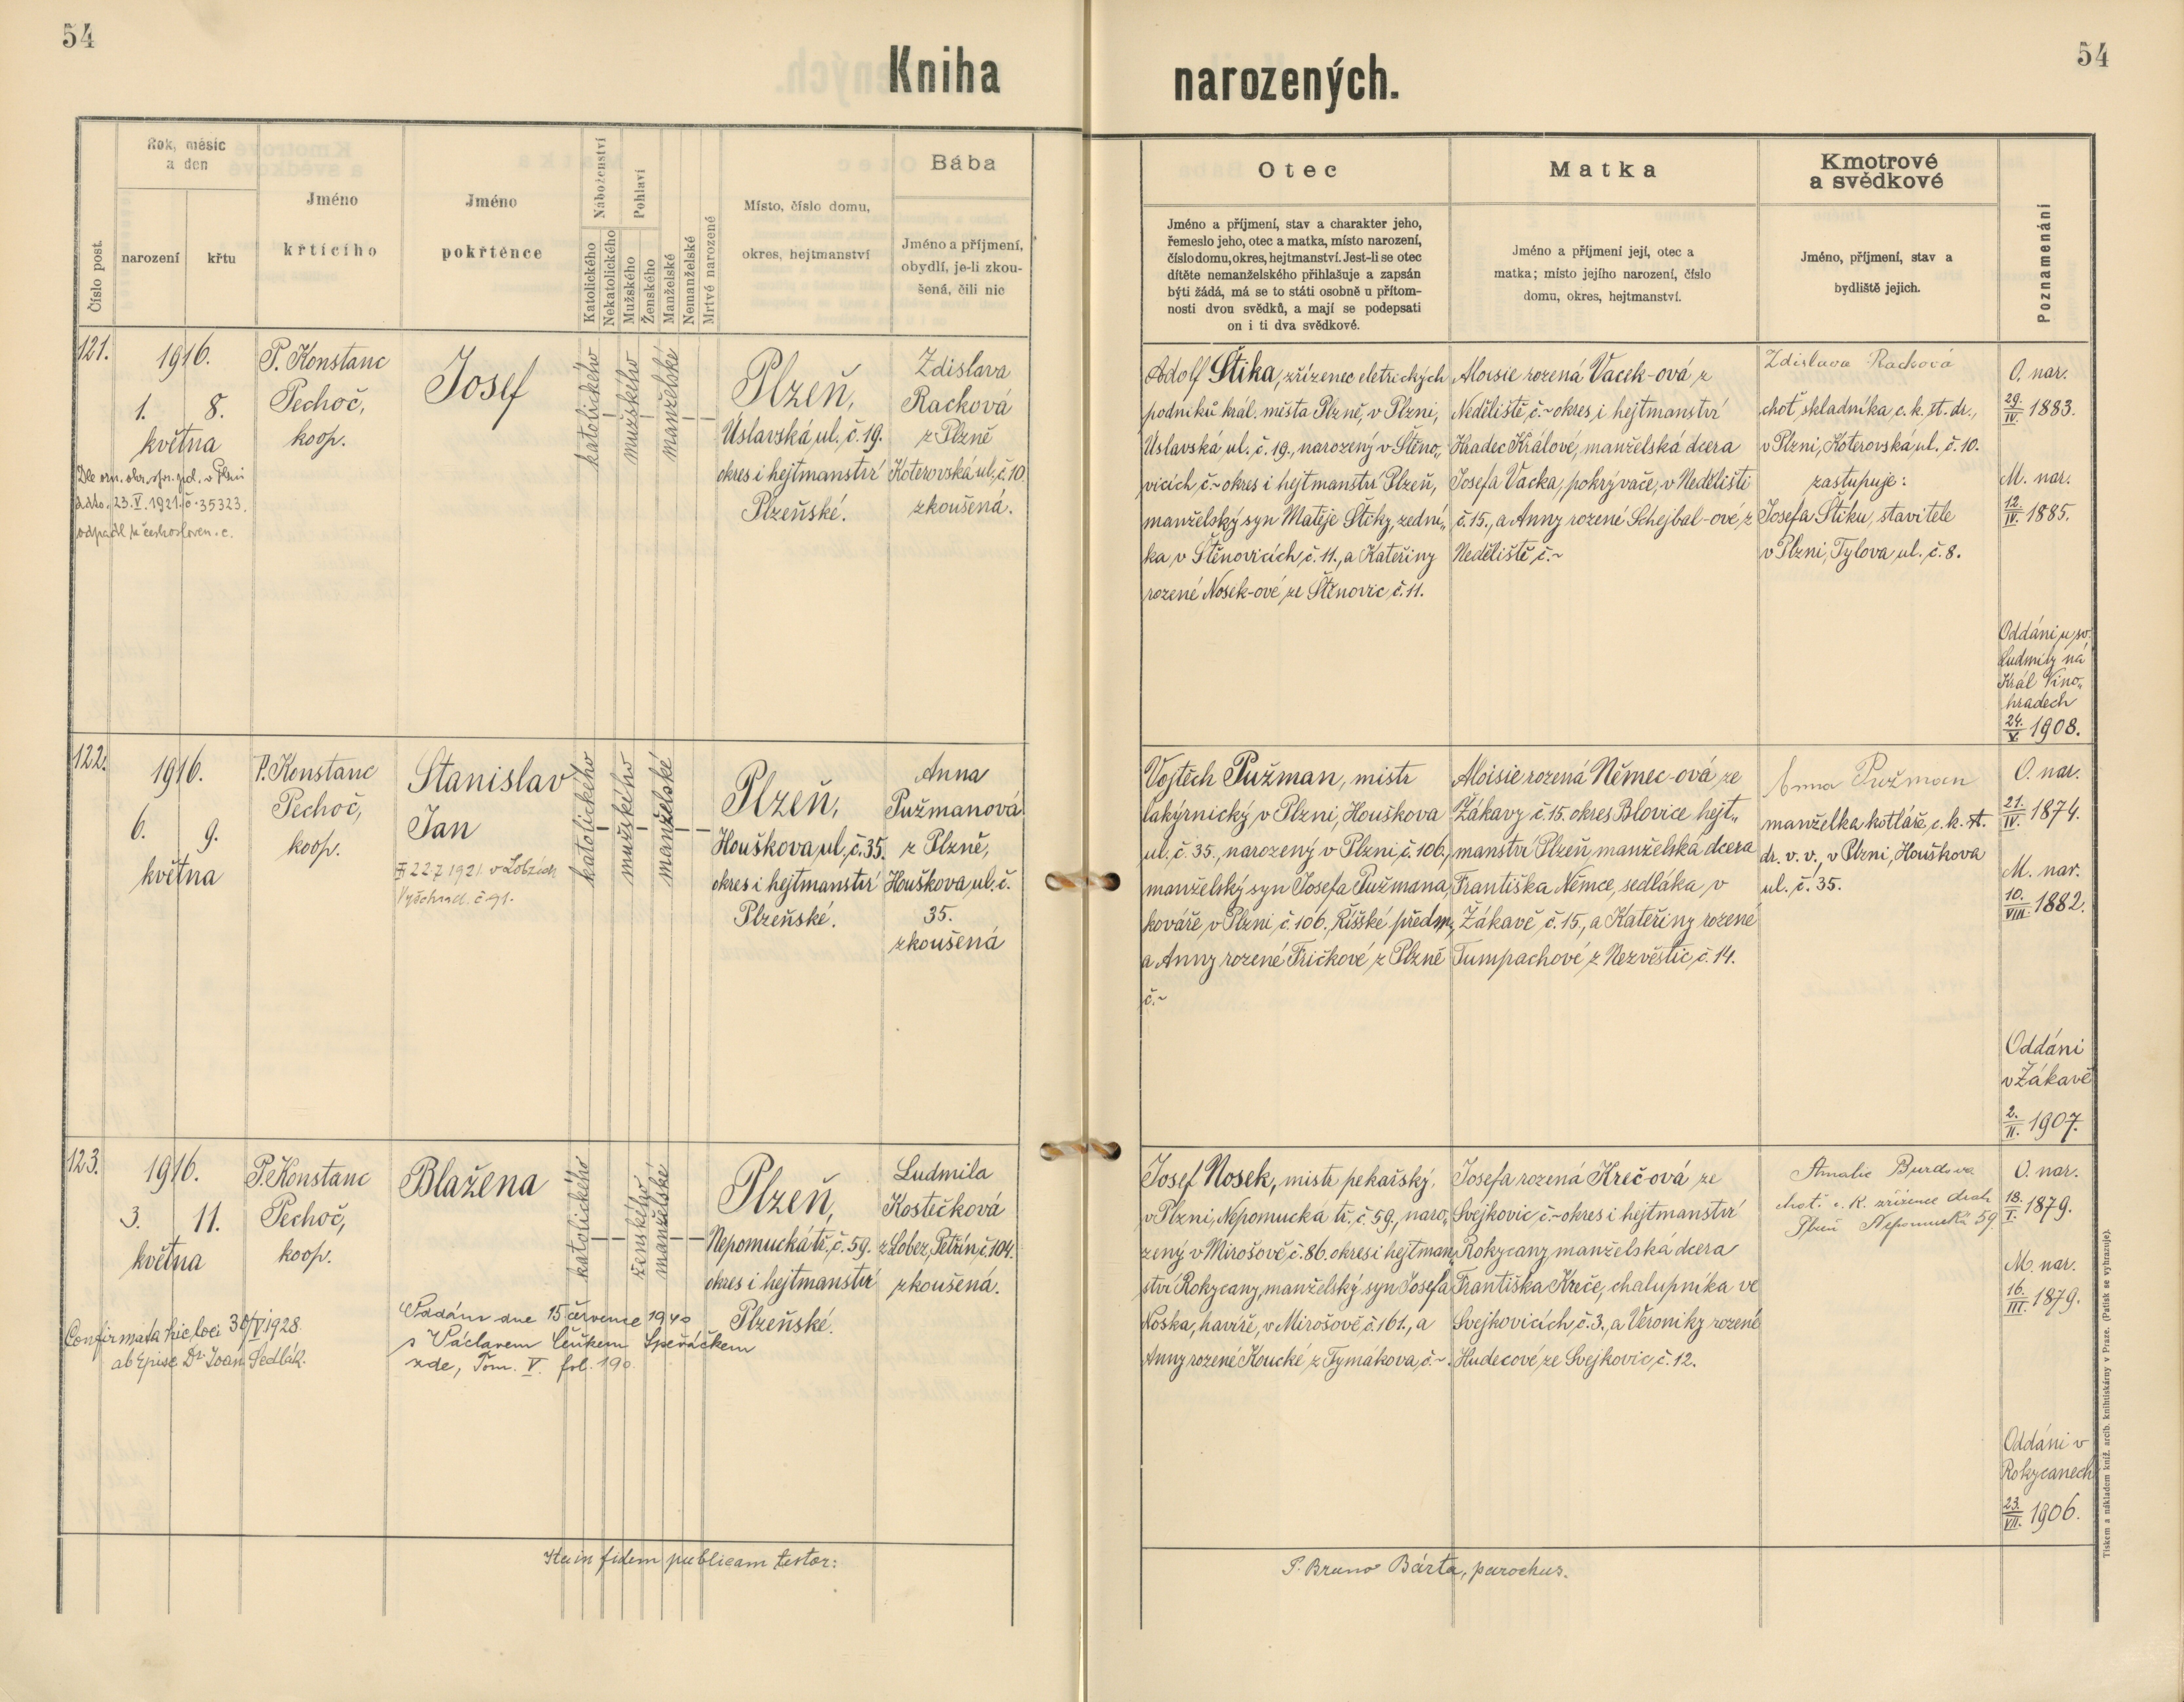 54
54
Kniha
narozených.
Rok, měsíc
a den
Číslo post.
narození
křtu
Jméno
křtícího
Jméno
pokřtěnce
Náboženství
Katolického
Nekatolického
Pohlaví
Mužského
Ženského
Manželské
Nemanželské
Mrtvé narozené
Místo, číslo domu,
okres, hejtmanství
Bába
Jméno a příjmení,
obydlí, je-li zkou-
šená, čili nic
Otec
Jméno a příjmení, stav a charakter jeho,
řemeslo jeho, otec a matka, místo narození,
číslo domu, okres, hejtmanství. Jest-li se otec
dítěte nemanželského přihlašuje a zapsán
býti žádá, má se to státi osobně u přítom-
nosti dvou svědků, a mají se podepsati
on i ti dva svědkové.
Matka
Jméno a příjmení její, otec a
matka; místo jejího narození, číslo
domu, okres, hejtmanství.
Kmotrové
a svědkové
Jméno, příjmení, stav a
bydliště jejich.
Poznamenání
121.
1916.
1. 8.
května
Dle ozn. okr. spr. pol. v Plzni
z dto. 23.V.1921. č. 35323.
odpadl k českosloven. c.
P. Konstanc
Pechoč,
koop.
Josef
katolického
mužského
manželské
Plzeň,
Úslavská ul. č. 19.
okres i hejtmanství
Plzeňské.
Zdislava
Racková
z Plzně
Koterovská ul. č. 10
zkoušená.
Adolf Štika, zřízenec eletrických
podniků král. města Plzně, v Plzni,
Úslavská ul. č. 19., narozený v Štěno„
vicích č.~ okres i hejtmanství Plzeň,
manželský syn Matěje Štiky, zední„
ka v Štěnovicích, č. 11., a Kateřiny
rozené Nosek-ové, ze Štěnovic, č. 11.
Aloisie rozená Vacek-ová, z
Neděliště, č.~ okres i hejtmanství
Hradec Králové, manželská dcera
Josefa Vacka, pokrývače, v Neděliští
č. 15., a Anny rozené Schejbal-ové, z
Neděliště, č.~
Zdislava Racková
choť skladníka c. k. st. dr.,
v Plzni, Koterovská ul. č. 10.
zastupuje:
Josefa Štiku, stavitele
v Plzni, Tylova ul. č. 8.
O. nar.
29./IV. 1883.
M. nar.
12./IV. 1885.
Oddáni u sv.
Ludmily na
Král Vino„
hradech
24./V. 1908.
122.
1916.
6. 9.
května
P. Konstanc
Pechoč,
koop.
Stanislav
Jan
22.7.1921 v Lobzích
č 91.
katolického
mužského
manželské
Plzeň,
Houškova ul. č. 35.
okres i hejtmanství
Plzeňské.
Anna
Pužmanová
z Plzně,
Houškova ul. č.
35.
zkoušená
Vojtěch Pužman, mistr
lakýrnický v Plzni, Houškova
ul. č. 35., narozený v Plzni č. 106.,
manželský syn Josefa Pužmana,
kováře, v Plzni č. 106., Říšské předm.,
a Anny rozené Fričkové z Plzně
č.~
Aloisie rozená Němec-ová, ze
Žákavy č. 15. okres Blovice hejt„
manství Plzeň, manželská dcera
Františka Němce, sedláka, v
Žákavě, č. 15., a Kateřiny rozené
Tumpachové, z Nezvěstic, č. 14.
Anna Pužman
manželka kotláře, c. k. st.
dr. v. v., v Plzni, Houškova
ul. č. 35.
O. nar.
21./IV. 1874.
M. nar.
10./VIII. 1882.
Oddáni
v Žákavě
2./II. 1907.
123.
1916.
3. 11.
května
Confirmata hic loci 30/V 1928.
ab Episc. Dr Joan Sedlák.
P. Konstanc
Pechoč,
koop.
Blažena
Oddána dne 15 července 1940
s Václavem Čeňkem Speřáčkem
zde, Tom. V. fol. 190.
katolického
ženského
manželské
Plzeň,
Nepomucká tř. č. 59.
okres i hejtmanství
Plzeňské.
Ludmila
Kostečková
z Lobez, Petřín, č. 104.
zkoušená.
Josef Nosek, mistr pekařský,
v Plzni, Nepomucká tř. č. 59., naro„
zený v Mirošově, č. 86. okres i hejtman„
ství Rokycany, manželský syn Josefa
Noska, havíře, v Mirošově, č. 161., a
Anny rozené Koucké, z Tymákova, č.~.
Josefa rozená Kreč-ová ze
Svejkovic, č.~ okres i hejtmanství
Rokycany manželská dcera
Františka Kreče, chalupníka ve
Svejkovicích, č. 3., a Veroniky rozené
Hudecové, ze Svejkovic, č. 12.
Amalie Burdova
choť c. k. zřízence drah
Plzeň Nepomucká 59
O. nar.
18./I. 1879.
M. nar.
16./III. 1879.
Oddáni v
Rokycanech
23./VII. 1906.
Ita in fidem publicam testor:
P. Bruno Bárta, parochus.
Tiskem a nákladem kníž. arcib. knihtiskárny v Praze. (Patisk se vyhrazuje).